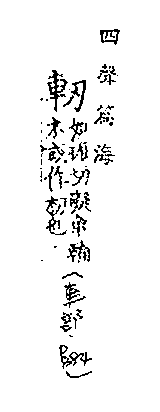 四聲篇海
軔
如切礙車輪（車部
木或作也